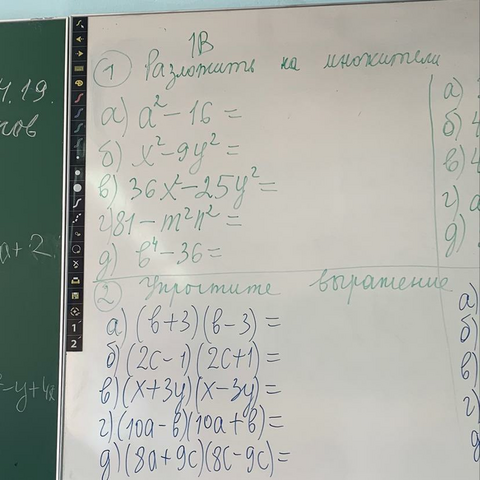 1В
① Разложить на множители
а) a² - 16 =
б) x² - 9y² =
в) 36x² - 25y² =
г) 81 - m²n² =
д) b⁴ - 36 =
② Упростите выражение
а) (b+3)(b-3) =
б) (2c-1)(2c+1) =
в) (x+3y)(x-3y) =
г) (10a-b)(10a+b) =
д) (8a+9c)(8c-9c) =
а)
б) 4
в) 4
г) a
д)
а)
б)
в)
г)
д
.19.
ов
a+2
-y+4
1
2